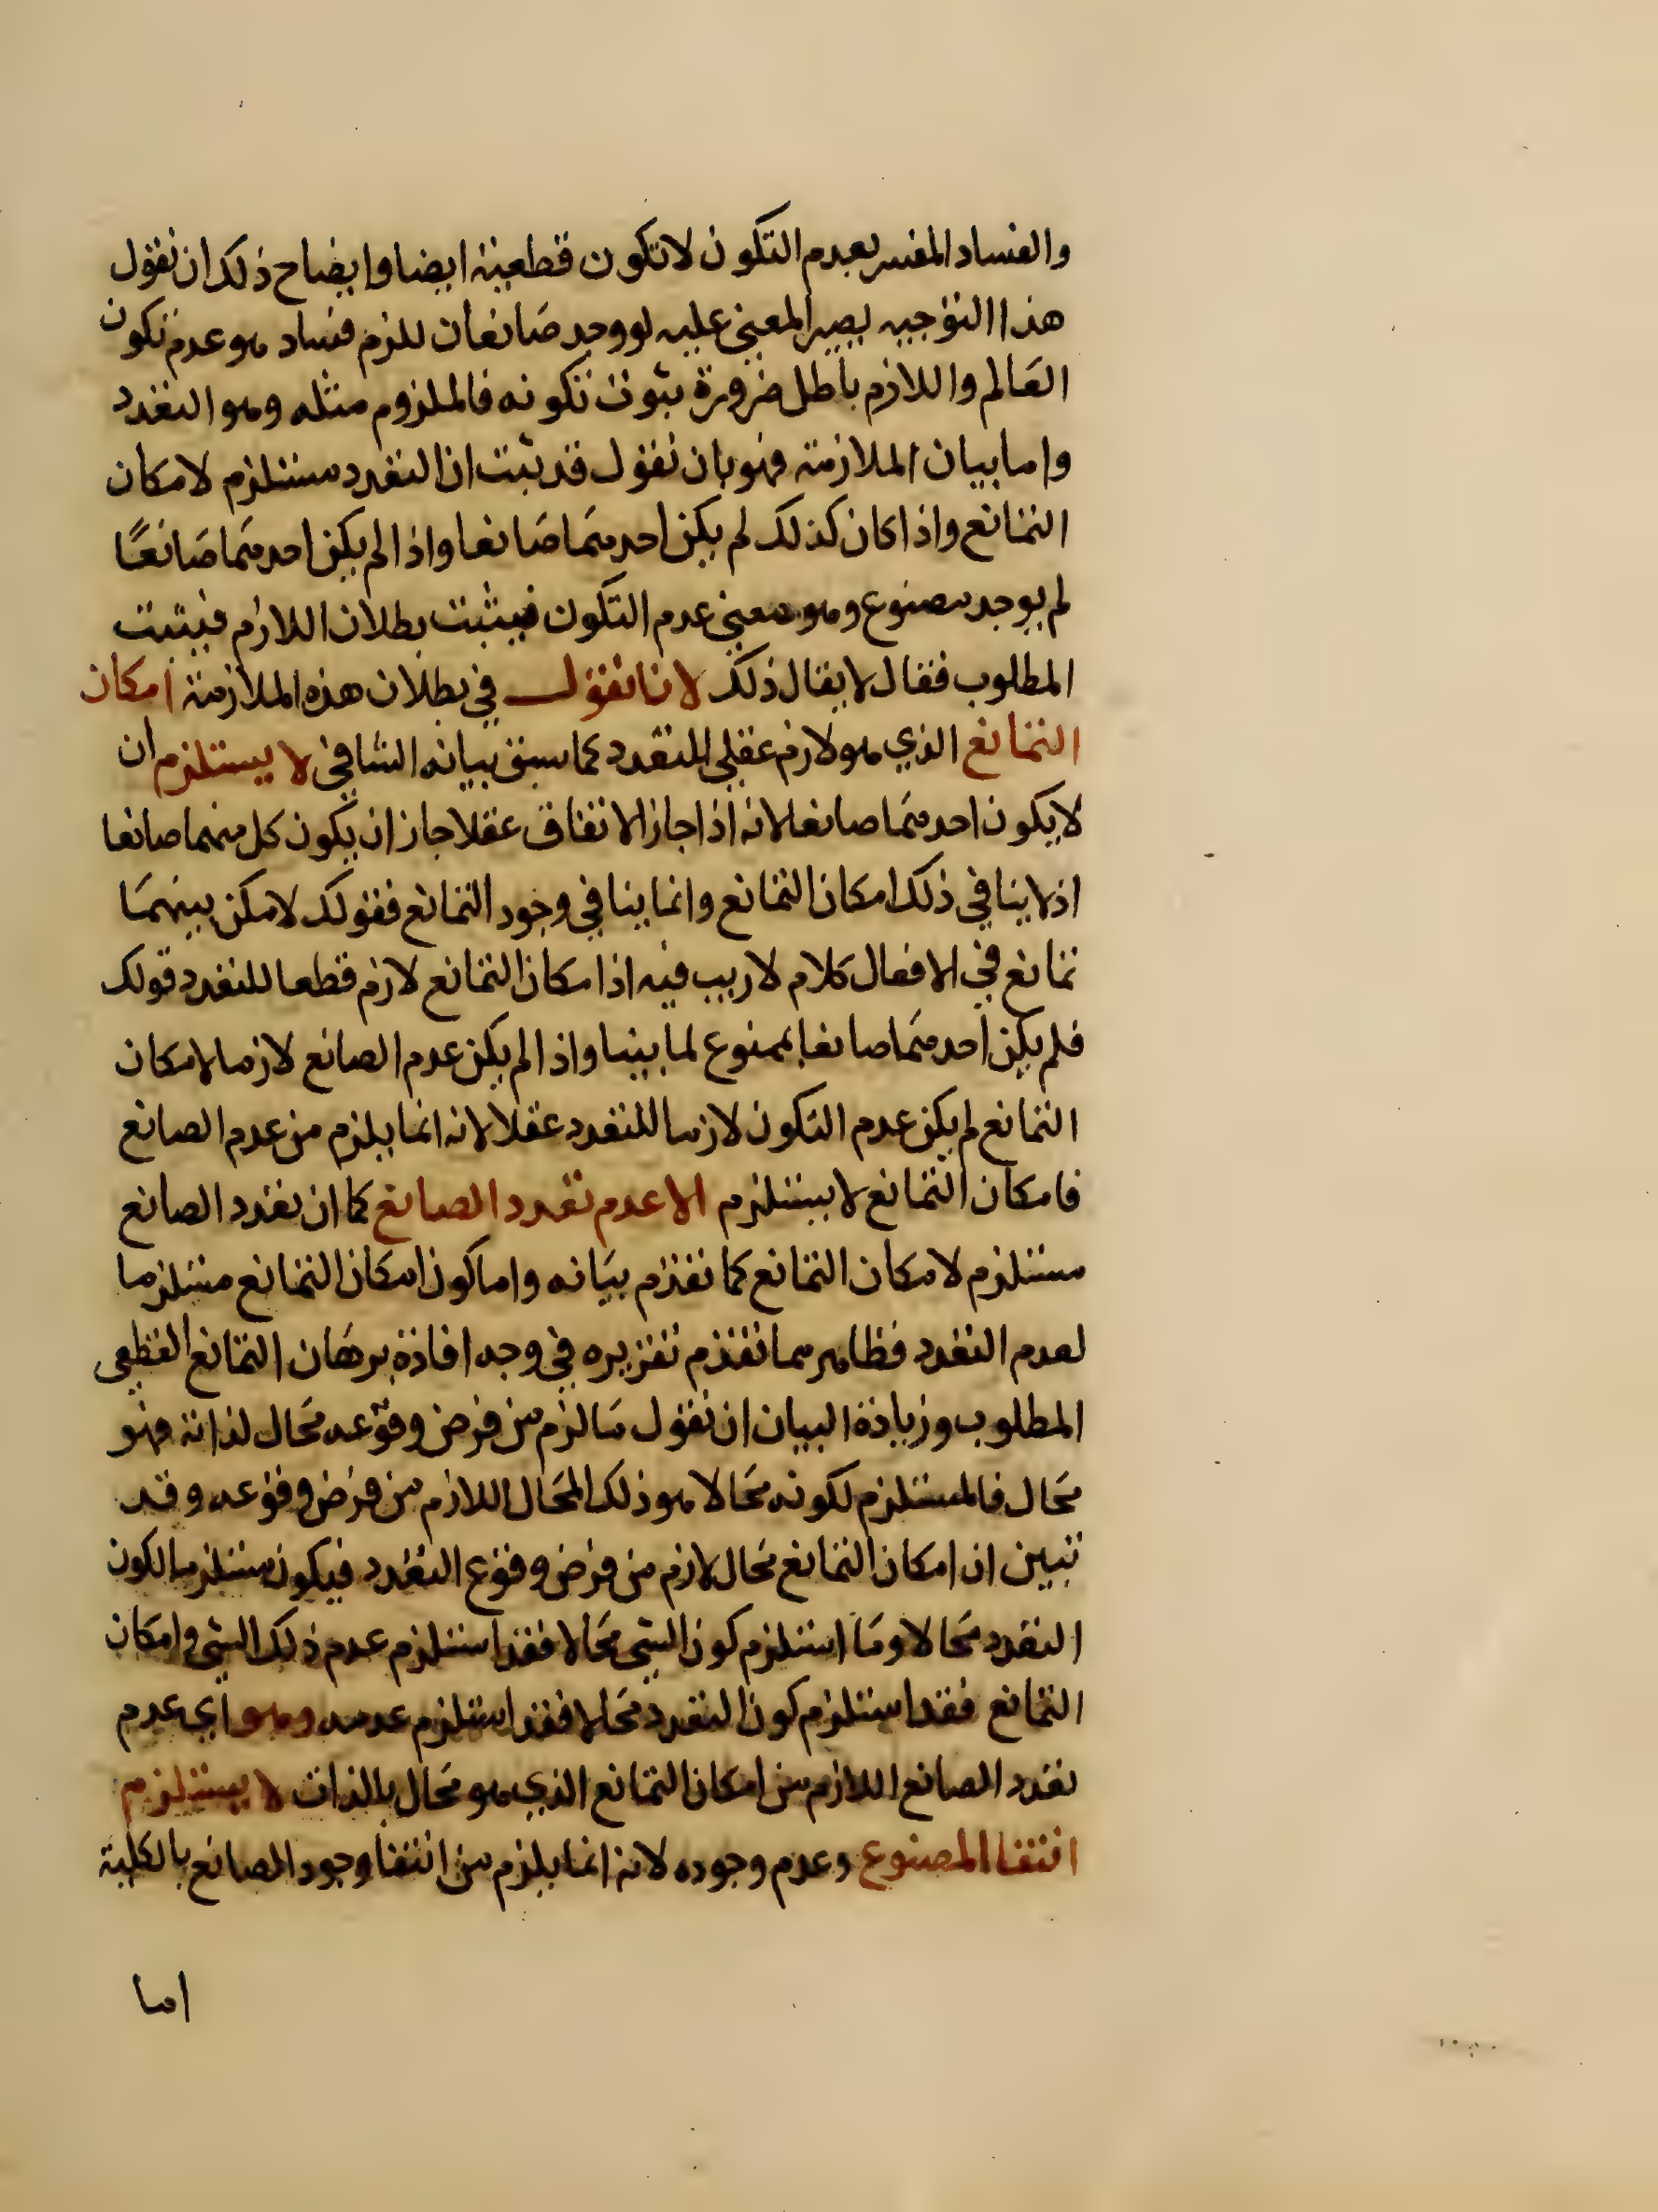 والفساد المفسر بعدم التكون لا تكون قطعية ايضا وايضاح ذلك ان نقول
هذا التوجيه يصير المعنى عليه لو وجد صانعان للزم فساد هو عدم تكون
العالم واللازم باطل ضرورة ثبوت تكونه فالملزوم مثله وهو التعدد
واما بيان الملازمة فهو بان نقول قد ثبت ان التعدد مستلزم لامكان
التمانع واذا كان كذلك لم يكن احدهما صانعا واذا لم يكن احدهما صانعًا
لم يوجد مصنوع وهو معنى عدم التكون فيثبت بطلان اللازم فيثبت
المطلوب فقال لا يقال ذلك لانا نقول في بطلان هذه الملازمة امكان
التمانع الذي هو لازم عقلي للتعدد كما سبق بيانه الشافي لا يستلزم ان
لا يكون احدهما صانعا لانه اذا جاز الاتفاق عقلا جاز ان يكون كل منهما صانعا
اذ لا ينافي ذلك امكان التمانع وانما ينافي وجود التمانع فقولك لامكن بينهما
تمانع في الافعال كلام لا ريب فيه اذ امكان التمانع لازم قطعا للتعدد قولك
فلم يكن احدهما صانعا ممنوع لما بينا واذا لم يكن عدم الصانع لازما لامكان
التمانع لم يكن عدم التكون لازما للتعدد عقلا لانه انما يلزم من عدم الصانع
فامكان التمانع لا يستلزم الا عدم تعدد الصانع كما ان تعدد الصانع
مستلزم لامكان التمانع كما تقدم بيانه واما كون امكان التمانع مستلزما
لعدم التعدد فظاهر مما تقدم تقريره في وجه افادة برهان التمانع القطعي
المطلوب وزيادة البيان ان نقول ما لزم من فرض وقوعه محال لذاته فهو
محال فالمستلزم لكونه محالا هو ذلك المحال اللازم من فرض وقوعه وقد
تبين ان امكان التمانع محال لازم من فرض وقوع التعدد فيكون مستلزما لكون
التعدد محالا وما استلزم كون الشي محالا فقد استلزم عدم ذلك الشي وامكان
التمانع فقد استلزم كون التعدد محالا فقد استلزم عدمه وهو اي عدم
تعدد الصانع اللازم من امكان التمانع الذي هو محال بالذات لا يستلزم
انتفا المصنوع وعدم وجوده لانه انما يلزم من انتفا وجود الصانع بالكلية
اما